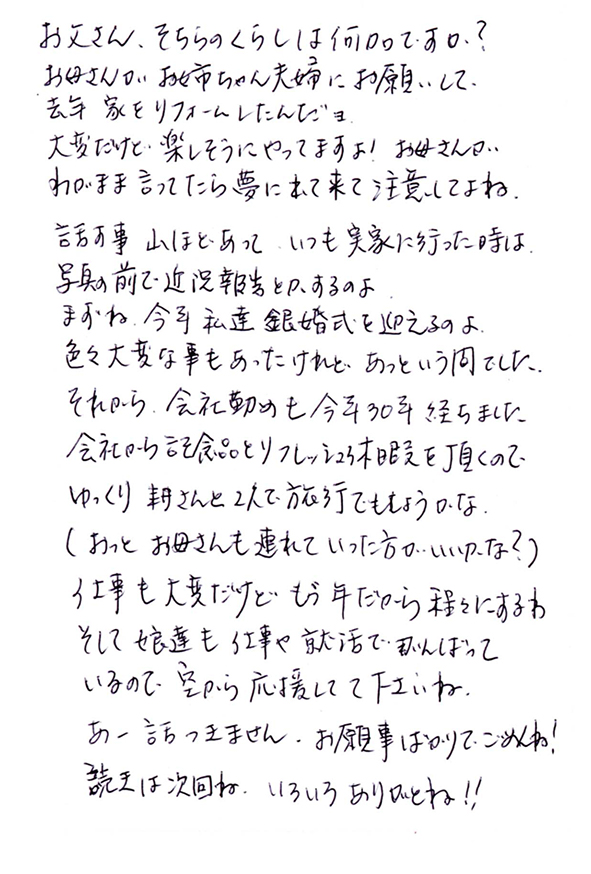 お父さん、そちらのくらしは何かですか?
お母さんが お姉ちゃん夫婦に お願いして、
去年 家をリフォームしたんだヨ
大変だけど 楽しそうにやってますよ! お母さんが
わがまま言ってたら夢に出て来て注意してよね.
話す事 山ほどあって いつも実家に行った時は
写真の前で近況報告とかするのよ
まずね、今年 私達 銀婚式を迎えるのよ.
色々大変な事もあったけれど、あっという間でした.
それから、会社勤めも今年30年経ちました
会社から記念品とリフレッシュ休暇を頂くので
ゆっくり 耕さんと2人で旅行でもしようかな.
(おっと お母さんも連れていった方がいいかな?)
仕事も大変だけど もう年だから程々にするわ
そして娘達も仕事や就活でがんばって
いるので 空から応援してて下さいね.
あー 話つきません. お願事ばかりでごめんね!
続きは次回ね. いろいろ ありがとね!!